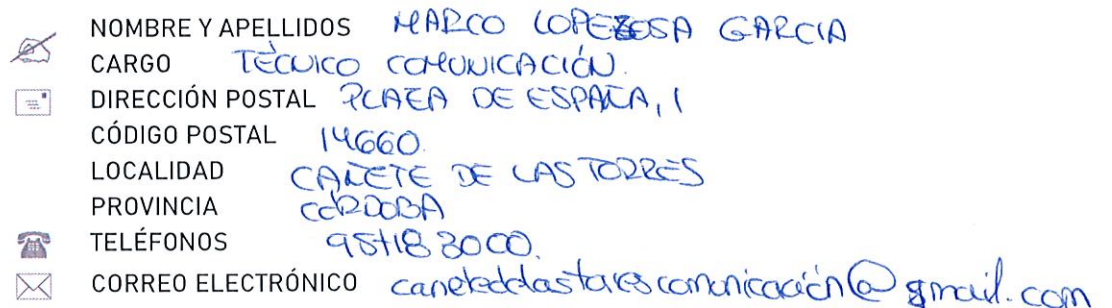 NOMBRE Y APELLIDOS MARCO LOPEZOSA GARCIA
CARGO TÉCNICO COMUNICACIÓN.
DIRECCIÓN POSTAL PLAZA DE ESPAÑA, 1
CÓDIGO POSTAL 14660.
LOCALIDAD CAÑETE DE LAS TORRES
PROVINCIA CÓRDOBA
TELÉFONOS 957183000.
CORREO ELECTRÓNICO @gmail.com